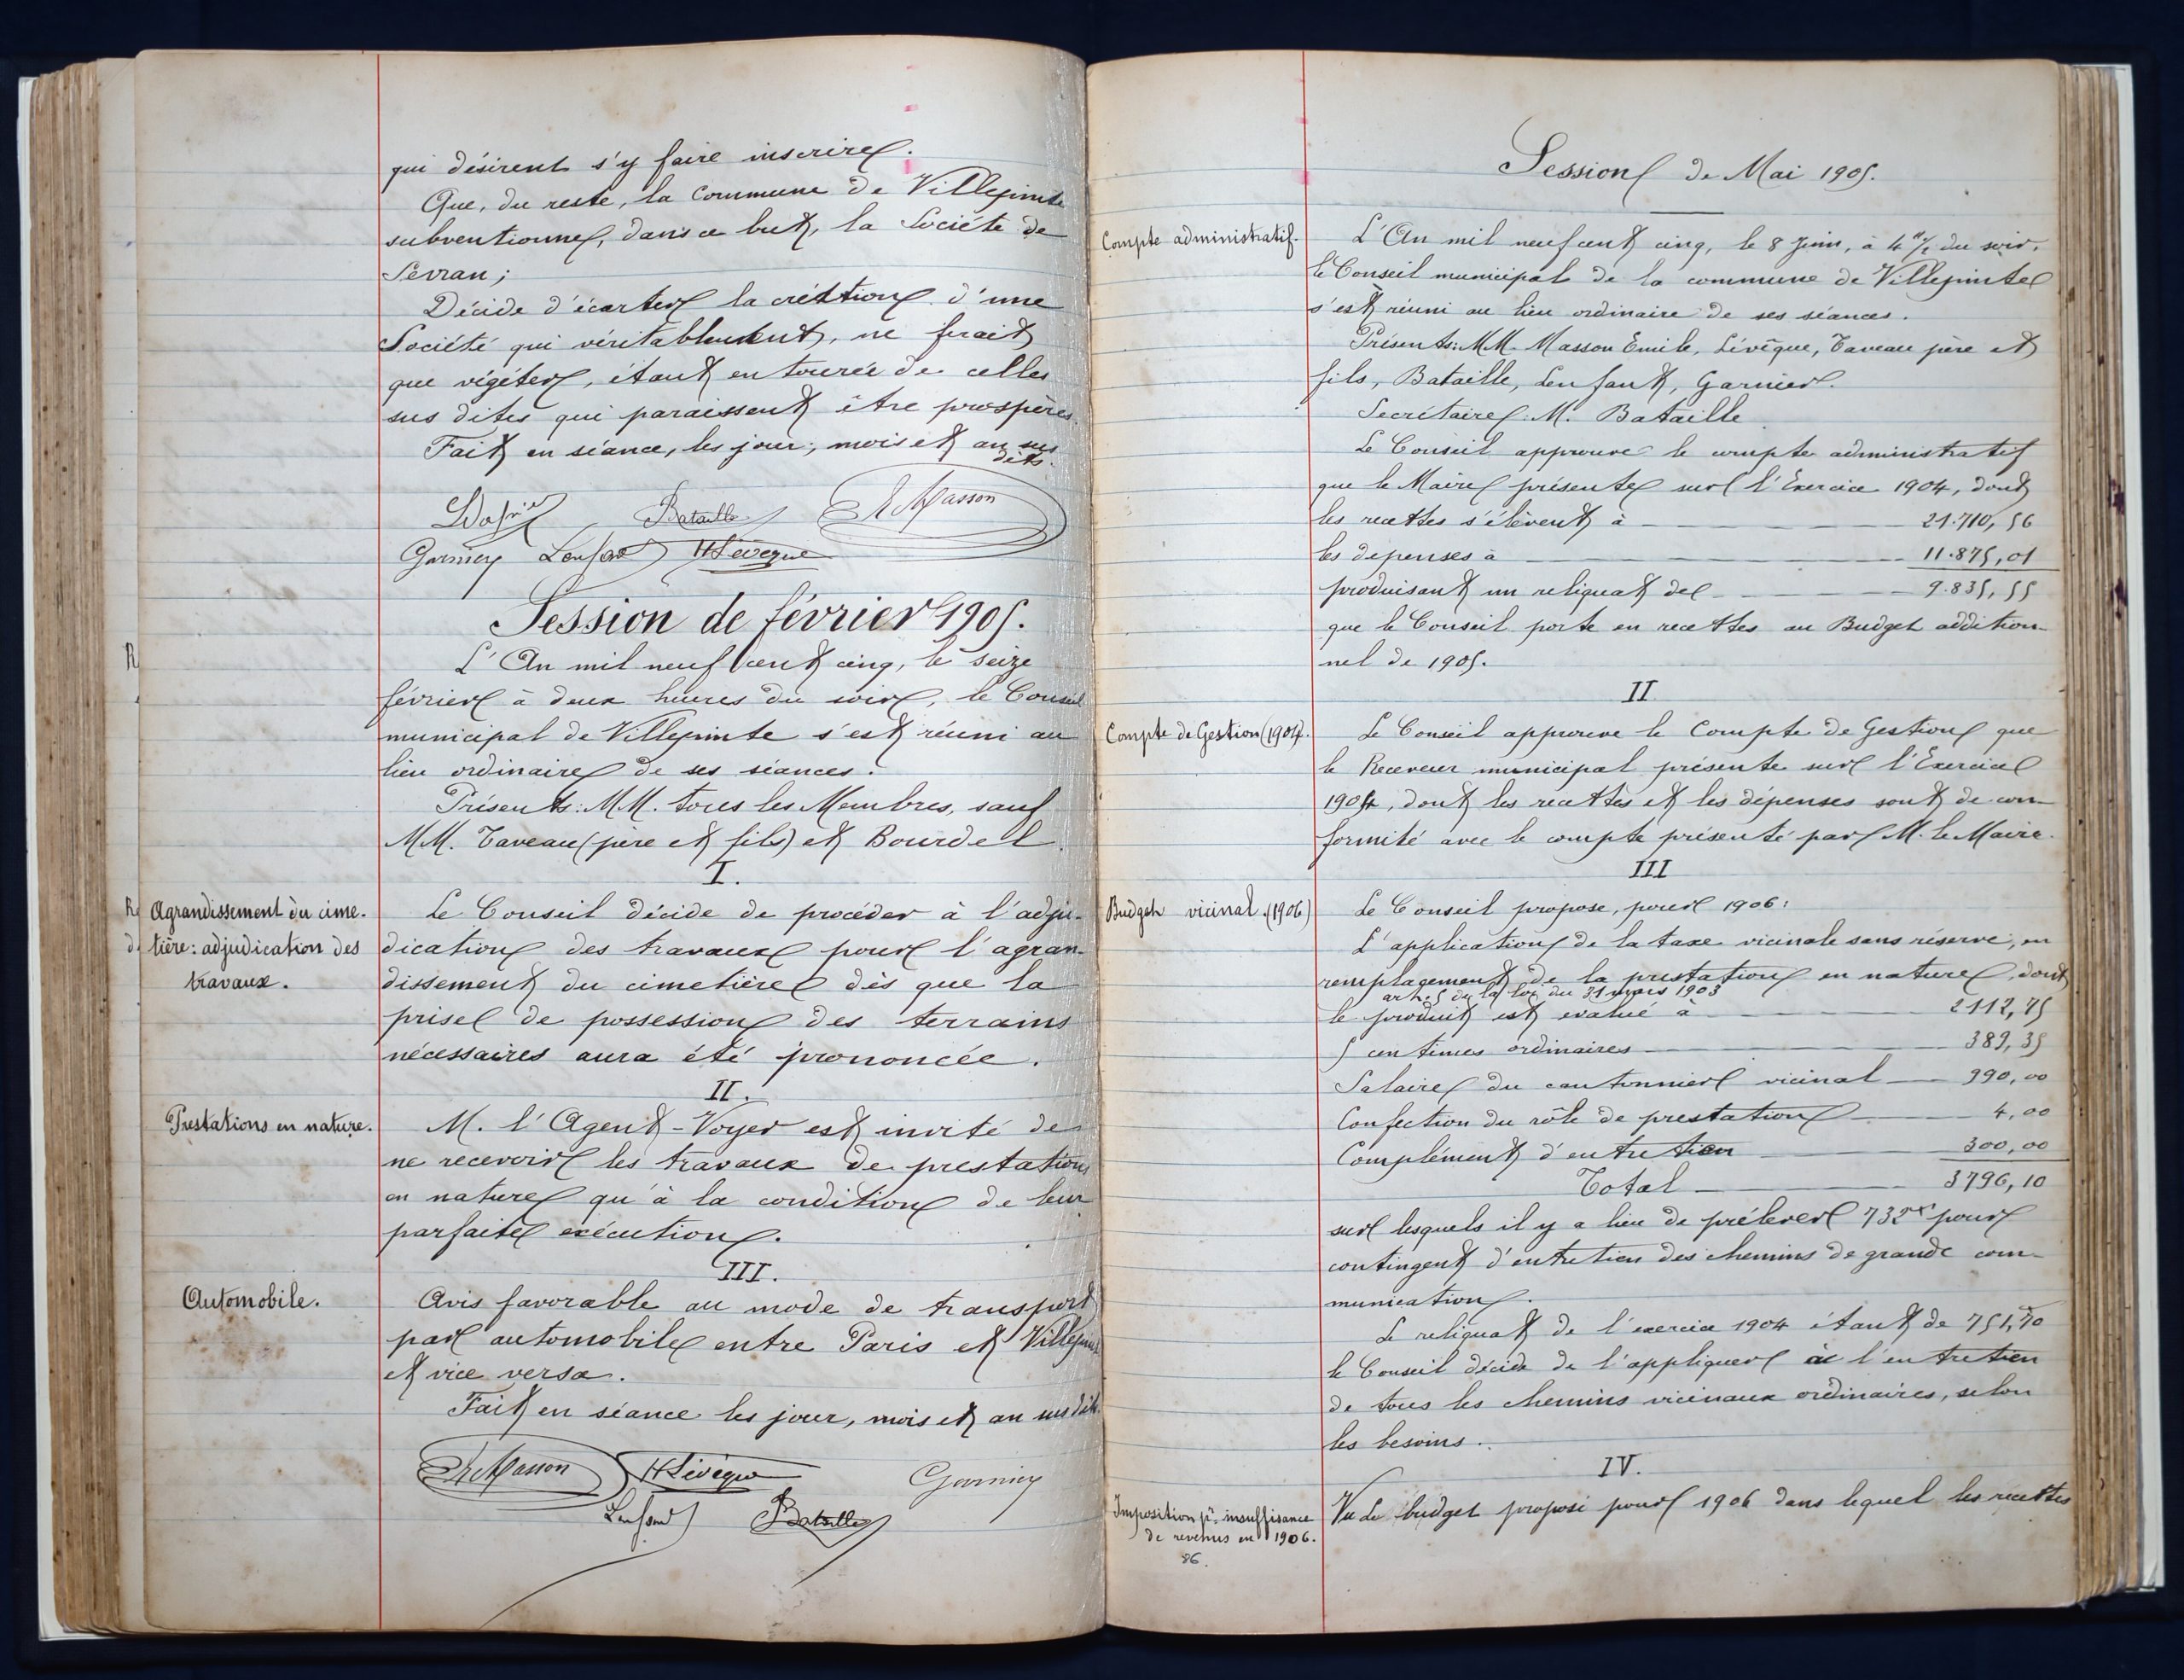 qui désirent s'y faire inscrire.
Que, du reste, la Commune de Villepinte
subventionne, dans ce but, la Société de
Sevran;
Décide d'écarter la création d'une
Société qui véritablement, ne ferait
que végéter, étant entourée de celles
sus dites qui paraissent être prospères.
Fait en séance, les jour, mois et an sus
dits.
Bataille E Masson
Garnier Lenfant H Lévêque
Session de février 1905.
L'An mil neuf cent cinq, le seize
février à deux heures du soir, le Conseil
municipal de Villepinte s'est réuni au
lieu ordinaire de ses séances.
Présents: MM. tous les Membres, sauf
MM. Taveau (père et fils) et Bourdel.
I.
Agrandissement du cime-
tière: adjudication des
travaux.
Le Conseil décide de procéder à l'adju-
dication des travaux pour l'agran-
dissement du cimetière dès que la
prise de possession des terrains
nécessaires aura été prononcée.
II.
Prestations en nature.
M. l'Agent-Voyer est invité de
ne recevoir les travaux de prestations
en nature qu'à la condition de leur
parfaite exécution.
III.
Automobile.
Avis favorable au mode de transport
par automobile entre Paris et Villepinte
et vice versa.
Fait en séance les jour, mois et an sus dits.
E Masson H Lévêque Garnier
Lenfant Bataille
Session de Mai 1905.
Compte administratif.
L'An mil neuf cent cinq, le 8 Juin, à 4 h 1/2 du soir,
le Conseil municipal de la commune de Villepinte
s'est réuni au lieu ordinaire de ses séances.
Présents: MM. Masson Emile, Lévêque, Taveau père et
fils, Bataille, Lenfant, Garnier.
Secrétaire: M. Bataille
Le Conseil approuve le compte administratif
que le Maire présente sur l'Exercice 1904, dont
les recettes s'élèvent à 21.710,56
les dépenses à 11.875,01
produisant un reliquat de 9.835,55
que le Conseil porte en recettes au Budget addition-
nel de 1905.
II
Compte de Gestion (1904).
Le Conseil approuve le Compte de Gestion que
le Receveur municipal présente sur l'Exercice
1904, dont les recettes et les dépenses sont de con-
formité avec le compte présenté par M. le Maire.
III
Budget vicinal (1906)
Le Conseil propose, pour 1906:
L'application de la taxe vicinale sans réserve, en
remplacement de la prestation en nature, dont
art. 5 de la loi du 31 mars 1903
le produit est évalué à 2112,75
5 centimes ordinaires 389,35
Salaire du cantonnier vicinal 990,00
Confection du rôle de prestation 4,00
Complément d'entretien 300,00
Total 3796,10
sur lesquels il y a lieu de prélever 732 fr pour
contingent d'entretien des chemins de grande com-
munication.
Le reliquat de l'exercice 1904 étant de 751,70
le Conseil décide de l'appliquer à l'entretien
de tous les chemins vicinaux ordinaires, selon
les besoins.
IV.
Imposition pr. insuffisance
de revenus en 1906.
86.
Vu le budget proposé pour 1906 dans lequel les recettes